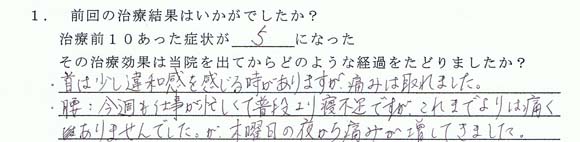 1．前回の治療結果はいかがでしたか？
治療前１０あった症状が 5 になった
その治療効果は当院を出てからどのような経過をたどりましたか？
・首は少し違和感を感じる時がありますが、痛みは取れました。
・腰：今週も仕事が忙しくて普段より寝不足ですが、これまでよりは痛く
ありませんでした。が、木曜日の夜から痛みが増してきました。